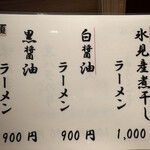 氷見産煮干し
ラーメン
1,000
白醤油
ラーメン
900円
黒醤油
ラーメン
900円